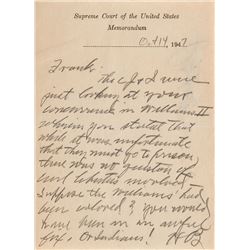 Supreme Court of the United States
Memorandum
Oct 14, 1947
Frank:
The CJ & I were
just looking at your
concurrence in Williams II
wherein you stated that
while it was unfortunate
that they must go to prison
there was no question of
civil liberties involved.
Suppose the Williams' had
been colored? You would
have been in an awful
fix. Or Indians!